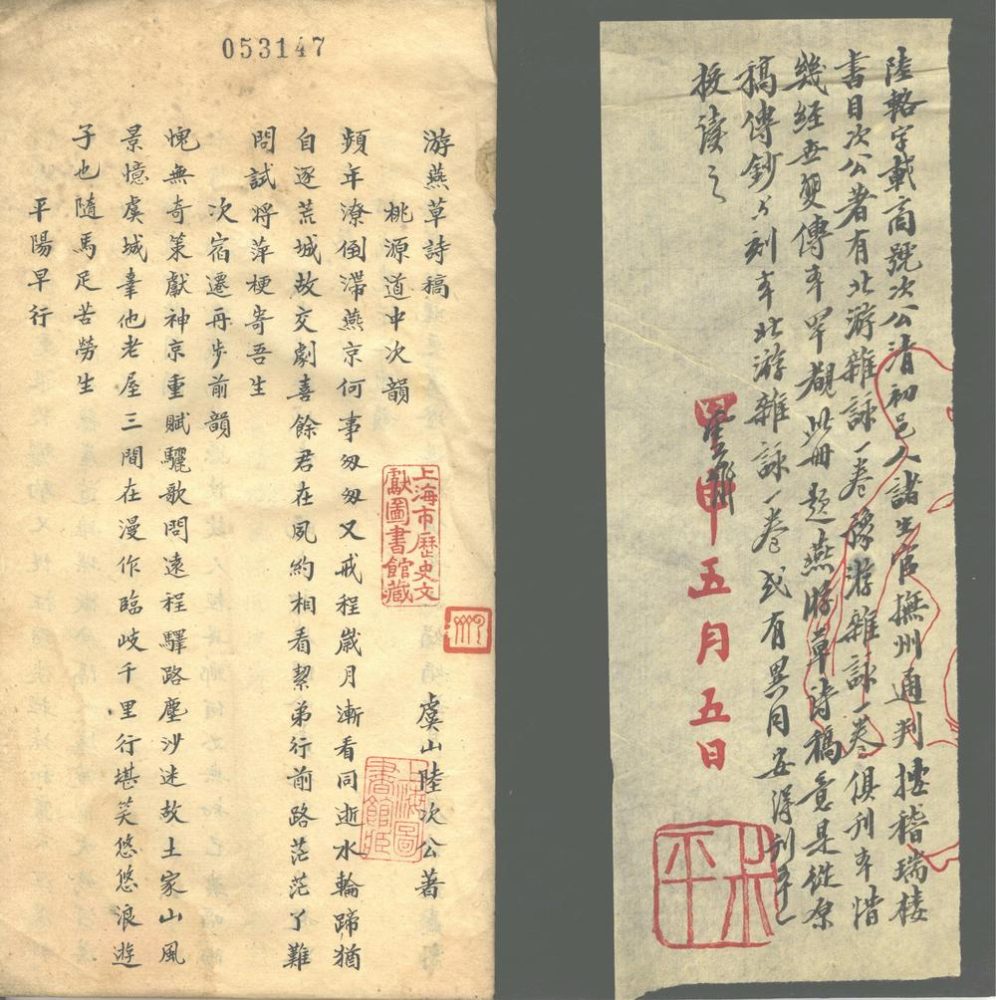 053147
游燕草詩稿 虞山陸次公著
桃源道中次韻
頻年潦倒滯燕京何事匆匆又戒程歲月漸看同逝水輪蹄猶
自逐荒城故交劇喜餘君在夙約相看絜弟行前路茫茫了難
問試將萍梗寄吾生
次宿遷再步前韻
愧無奇策獻神京重賦驪歌問遠程驛路塵沙迷故土家山風
景憶虞城羣他老屋三間在漫作臨歧千里行堪笑悠悠浪遊
子也隨馬足苦勞生
平陽早行
上海市歷史文
獻圖書館藏
上海圖
書館藏
陸輅字載商號次公清初邑人諸生官撫州通判摭稽瑞楼
書目次公著有北游雜詠一卷豫游雜詠一卷俱刊本惜
幾經兵燹傳本罕覯此冊題燕游草詩稿意是從原
稿傳鈔與刻本北游雜詠一卷或有異同安得刊本一
校讀之
甲申五月五日